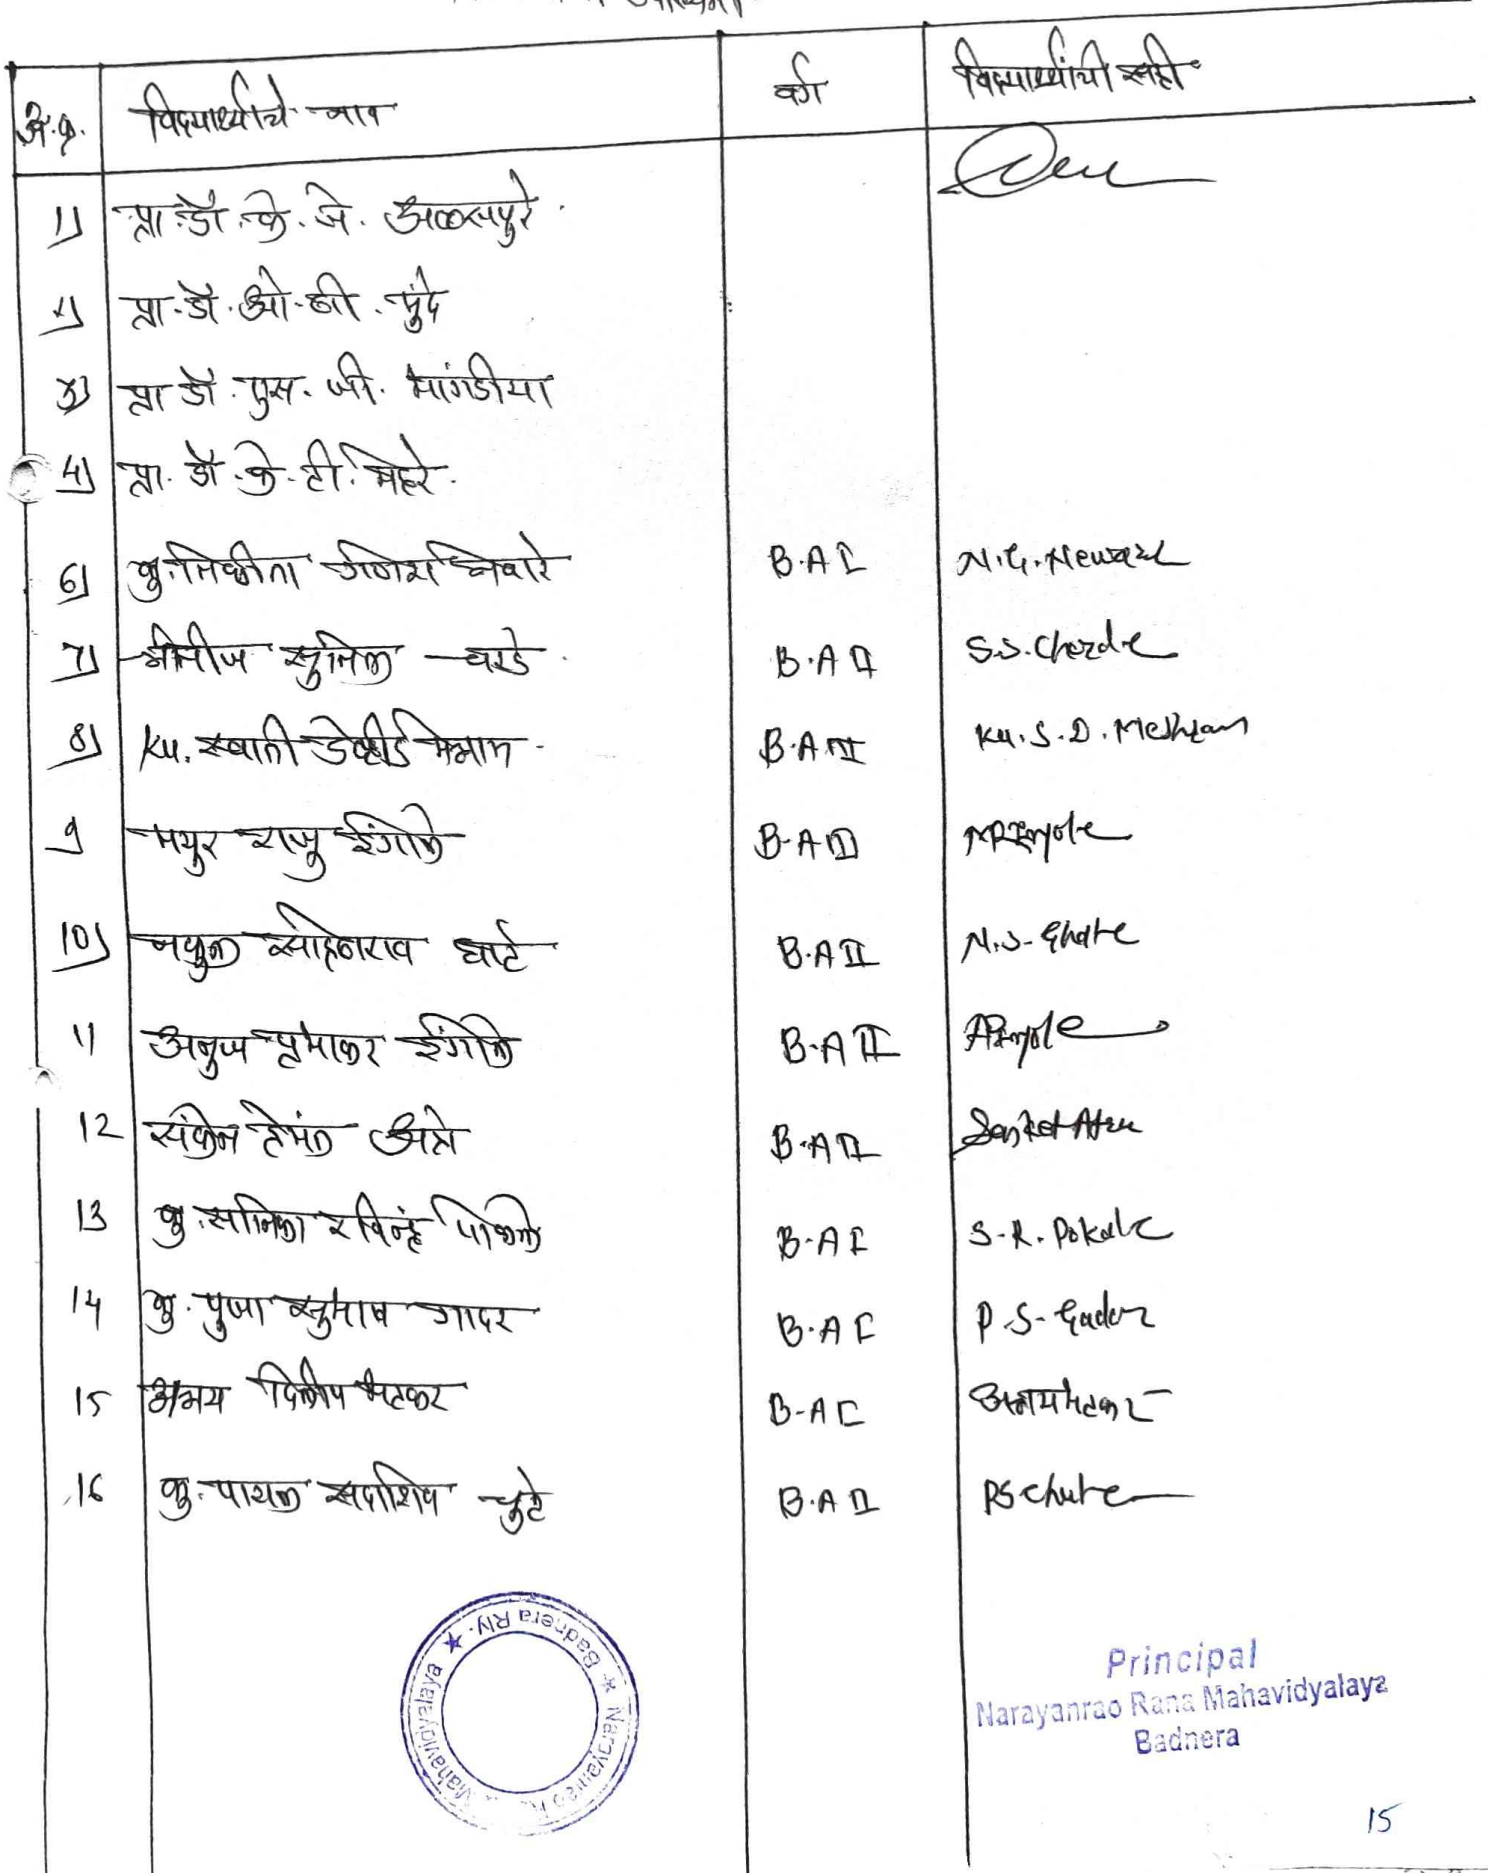 उपस्थिती
अ.क्र. विद्यार्थ्याचे नाव वर्ग विद्यार्थ्यांची सही
1) प्रा. डॉ. के. जे. अळसपुरे.
2) प्रा. डॉ. ओ. बी. मुंदे
3) प्रा डॉ. एस. जी. भांगडीया
4) प्रा. डॉ. के. टी. मेहरे.
6) कु. निकीता गणेश नेवारे B.A I N.G. Neware
7) सुनिल घरडे. B.A II S.S. Charde
8) Ku. स्वाती डेव्हीड मेश्राम. B.A III Ku. S. D. Meshram
9 मयुर राजु इंगोले B-A III MRIngole
10) नकुल सोहनराव घाटे B.A II N.S. Ghate
11 अनुज प्रभाकर इंगोले B.A II APIngole
12 संकेत हेमंत अत्रे B.A II Sanket Atre
13 कु. सानिका रविन्द्र पोकळे B.A I S.R. Pokale
14 कु. पुजा सुभाष गादर B.A I P.S. Gadar
15 अभय दिलीप भटकर B-A I अभय भटकर
16 कु. पायल सदाशिव चुटे B.A II PSchute
Narayanrao Mahavidyalaya ★ Badnera Rly. ★
Principal
Narayanrao Rana Mahavidyalaya
Badnera
15